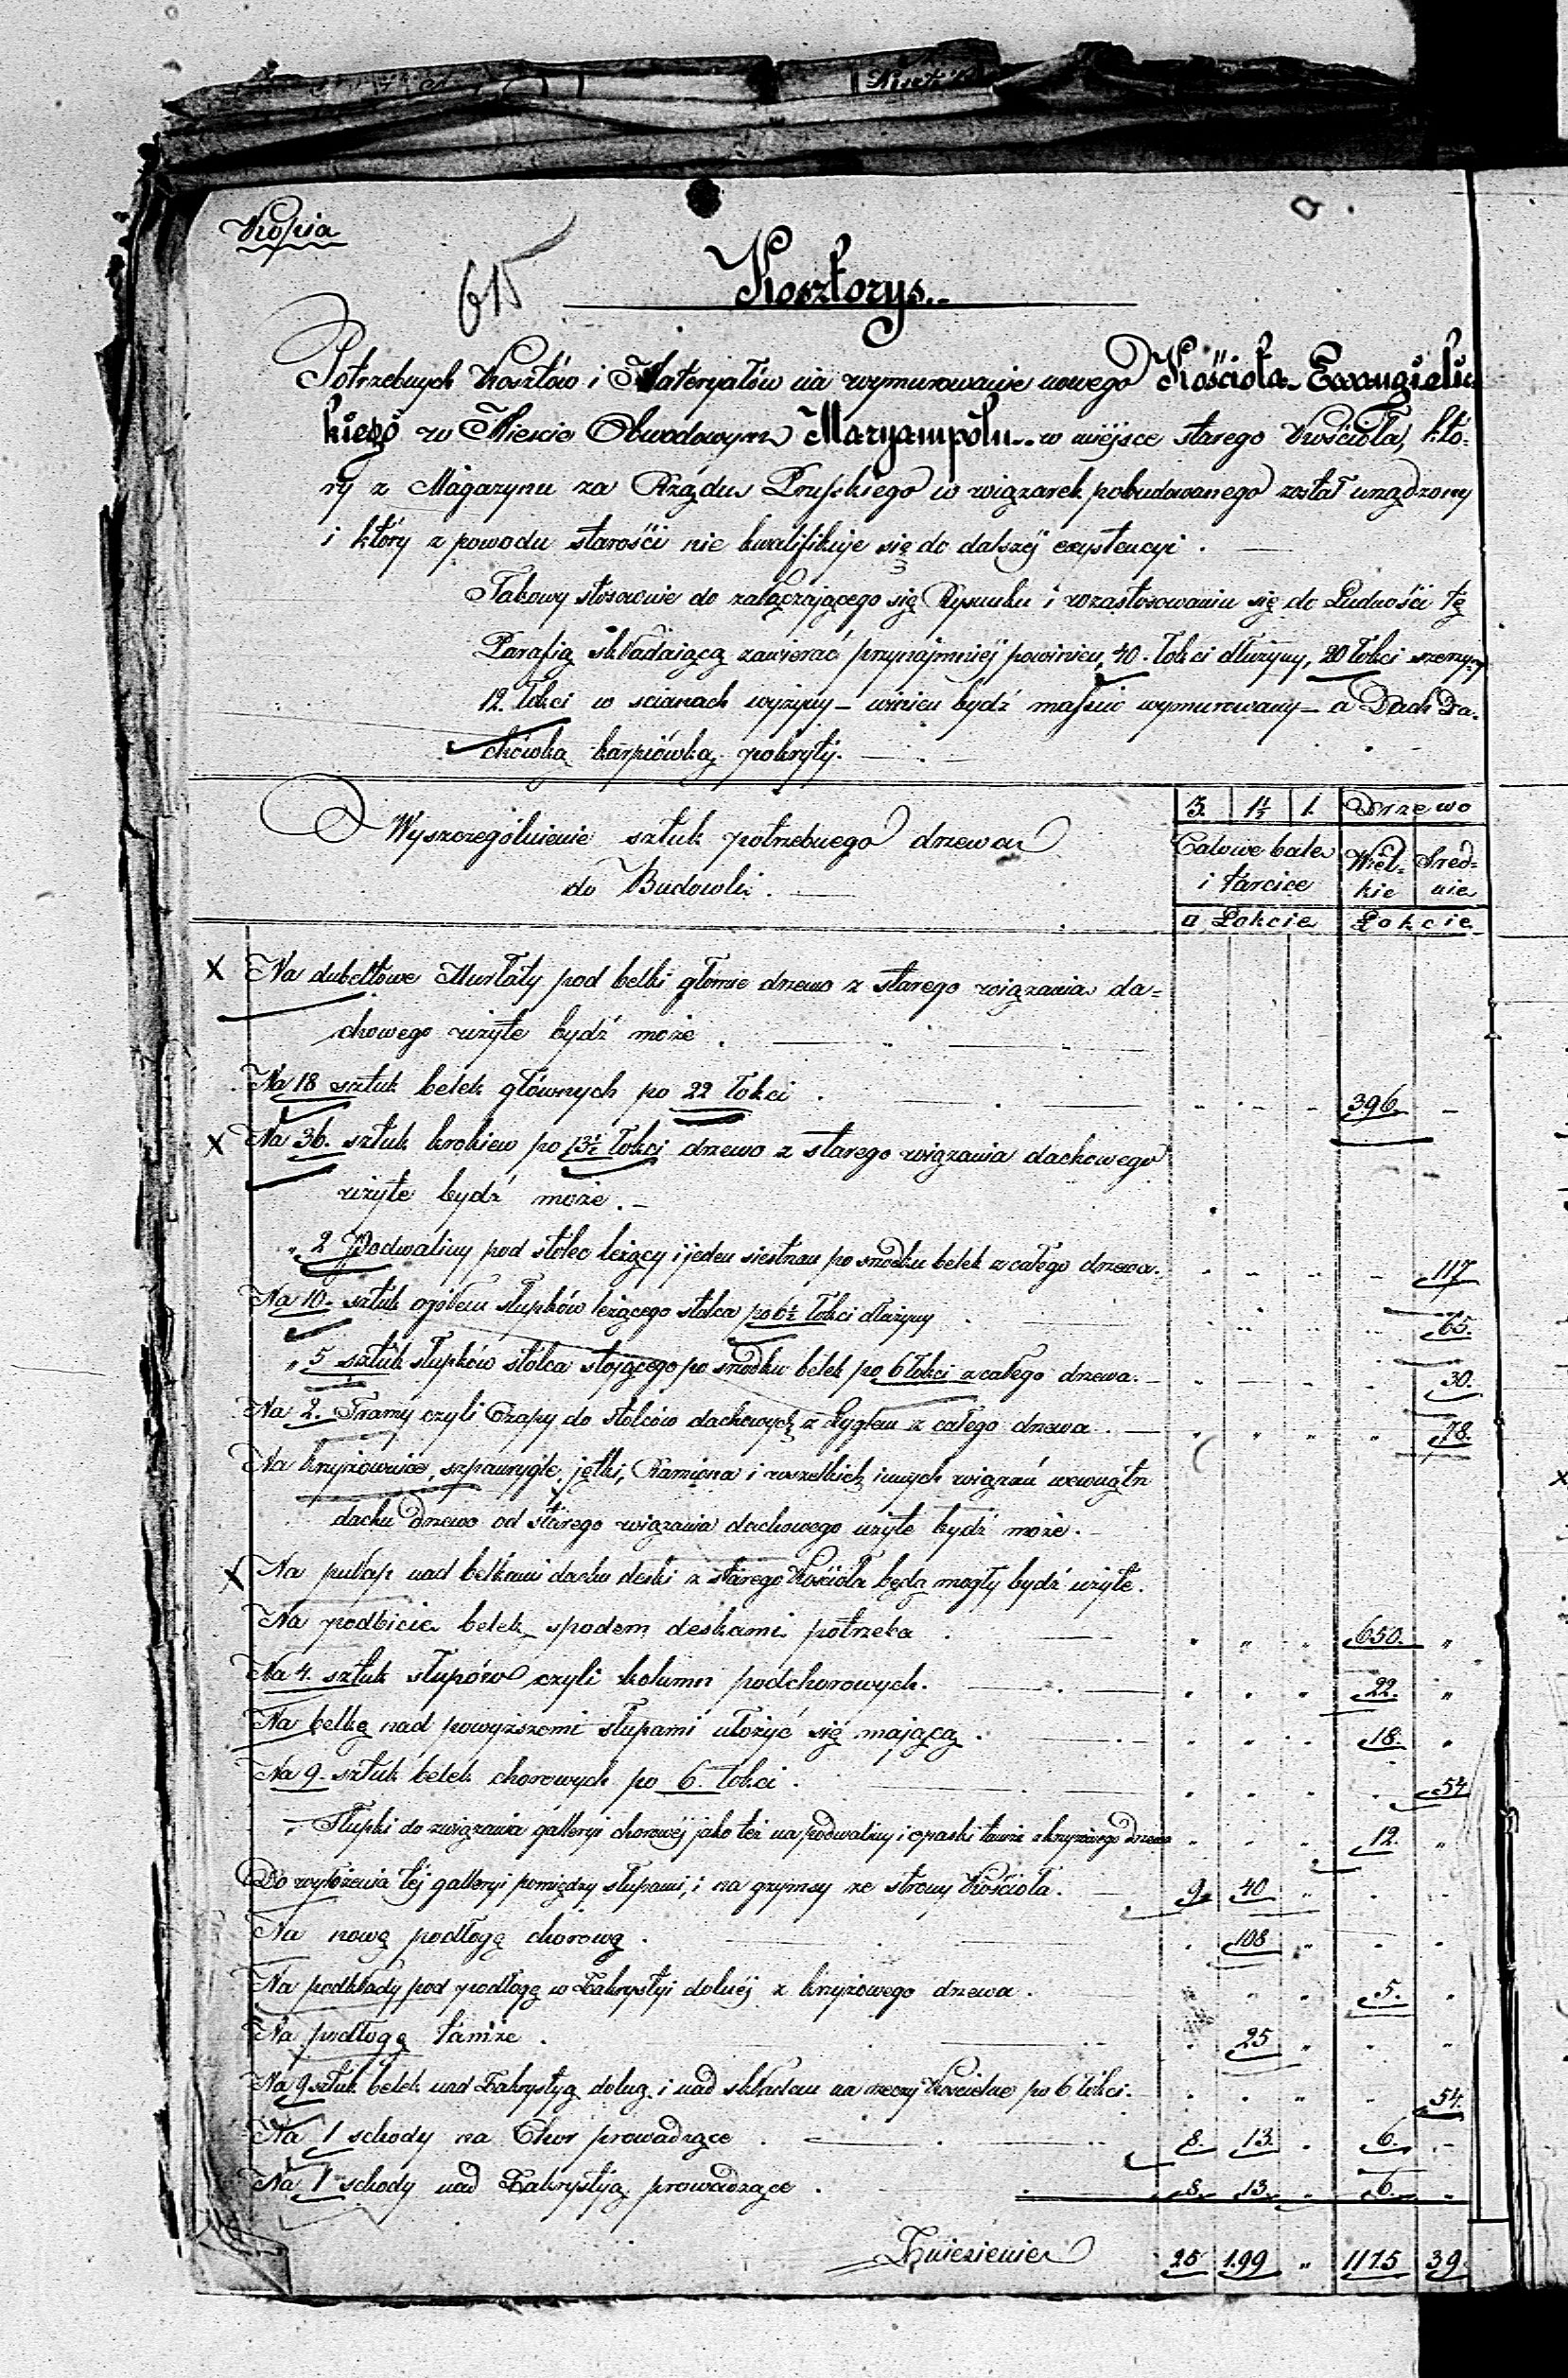 Kopia
615
Kosztorys.
Potrzebnych Kosztów i Materyałów na wymurowanie nowego Kościoła Ewangielic
kiego w Mieście Obwodowym Maryampolu w miejsce starego Kościoła, któ=
ry z Magazynu za Rządu Pruskiego w wiązarek pobudowanego został urządzony
i który z powodu starości nie kwalifikuje się do dalszej exystencyi.
Takowy stosownie do załączającego się Rysunku i wzastosowaniu się do Ludności tę
Parafią składaiącą zawierać przynajmniej powinien, 40. łokci dłużyny, 20 łokci szerzyny
12. łokci w scianach wyżyny – winien bydź massiw wymurowany – a Dach Da-
chówką karpiówką pokryty.
Wyszczególnienie sztuk potrzebnego drzewa
do Budowli.
3. | 1½ | 1. | Drzewo
Calowe bale | Wiel- | Śred-
i tarcice | kie | nie
a Łokcie | Łokcie
X Na dubeltowe Murłaty pod belki główne drzewo z starego wiązania da=
chowego użyte bydź może.
Na 18 sztuk belek głównych po 22 łokci . 396. –
X Na 36. sztuk krokiew po 13½ łokci drzewo z starego wiązania dachowego
użyte bydź może. –
" 2 Podwaliny pod stolec leżący i jeden siestrzan po srodku belek z całego drzewa. 117
Na 10. sztuk ogółem słupków leżącego stolca po 6½ łokci dłużyny . 65.
" 5 sztuk słupków stolca stojącego po srodku belek po 6 łokci z całego drzewa. – 30.
Na 2. Tramy czyli Czapy do stolców dachowych z Ryglem z całego drzewa . – 78.
Na krzyżownice, szpanrygle, jętki, Ramiona i wszelkich innych wiązań wewnątrz
dachu drzewo od starego wiązania dachowego użyte bydź może. –
X Na pułap nad belkami dachu deski z starego Kościoła będą mogły bydź użyte.
Na podbicie belek spodem deskami potrzeba . 650. "
Na 4. sztuk słupów czyli kolumn podchorowych. 22. "
Na belkę nad powyższemi słupami ułożyć się mającą. 18. "
Na 9. sztuk belek chorowych po 6. łokci. 54
" Słupki do związania galleryi chorowéj jako też na podwaliny i opaski tamże z krzyżowego drzewa 12. "
Do wyłożenia téj galleryi pomiędzy słupami, i na grzymsy ze strony Kościoła. 9. 40 "
Na nową podłogę chorową . 108 "
Na podkłady pod podłogę w Zakrystyi dolnéj z krzyżowego drzewa. 5. "
Na podłogę tamże . 25 "
Na 9 sztuk belek nad Zakrystyą dolną i nad składem na rzeczy Kościelne po 6 łokci. 54.
Na 1 schody na Chór prowadzące . 8. 13. " 6. –
Na 1 schody nad Zakrystyą prowadzące . 8. 13. " 6. "
Zniesienie 25 199 " 1115 39